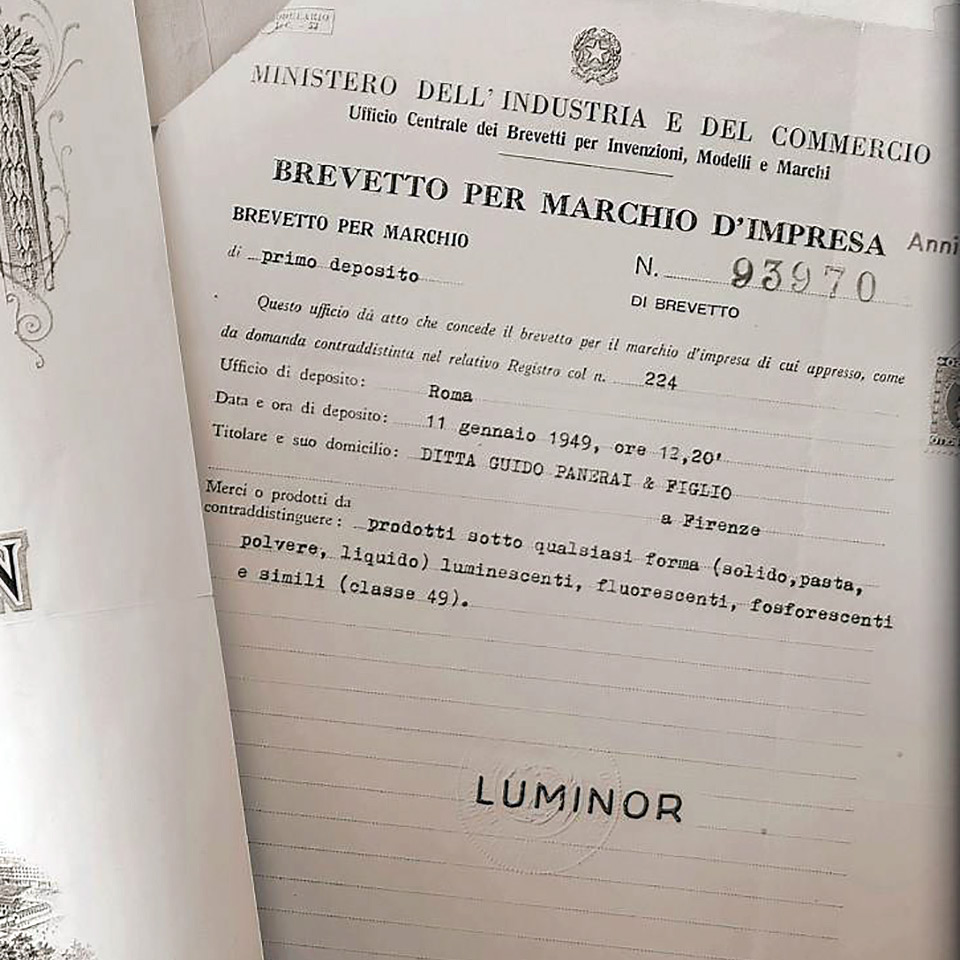 MODULARIO
MINISTERO DELL' INDUSTRIA E DEL COMMERCIO
Ufficio Centrale dei Brevetti per Invenzioni, Modelli e Marchi
BREVETTO PER MARCHIO D'IMPRESA
Anni
BREVETTO PER MARCHIO
di primo deposito
N. 93970
DI BREVETTO
Questo ufficio dá atto che concede il brevetto per il marchio d'impresa di cui appresso, come
da domanda contraddistinta nel relativo Registro col n. 224
Ufficio di deposito: Roma
Data e ora di deposito: 11 gennaio 1949, ore 12,20'
Titolare e suo domicilio: DITTA GUIDO PANERAI & FIGLIO
a Firenze
Merci o prodotti da
contraddistinguere: prodotti sotto qualsiasi forma (solido,pasta,
polvere, liquido) luminescenti, fluorescenti, fosforescenti
e simili (classe 49).
N
LUMINOR